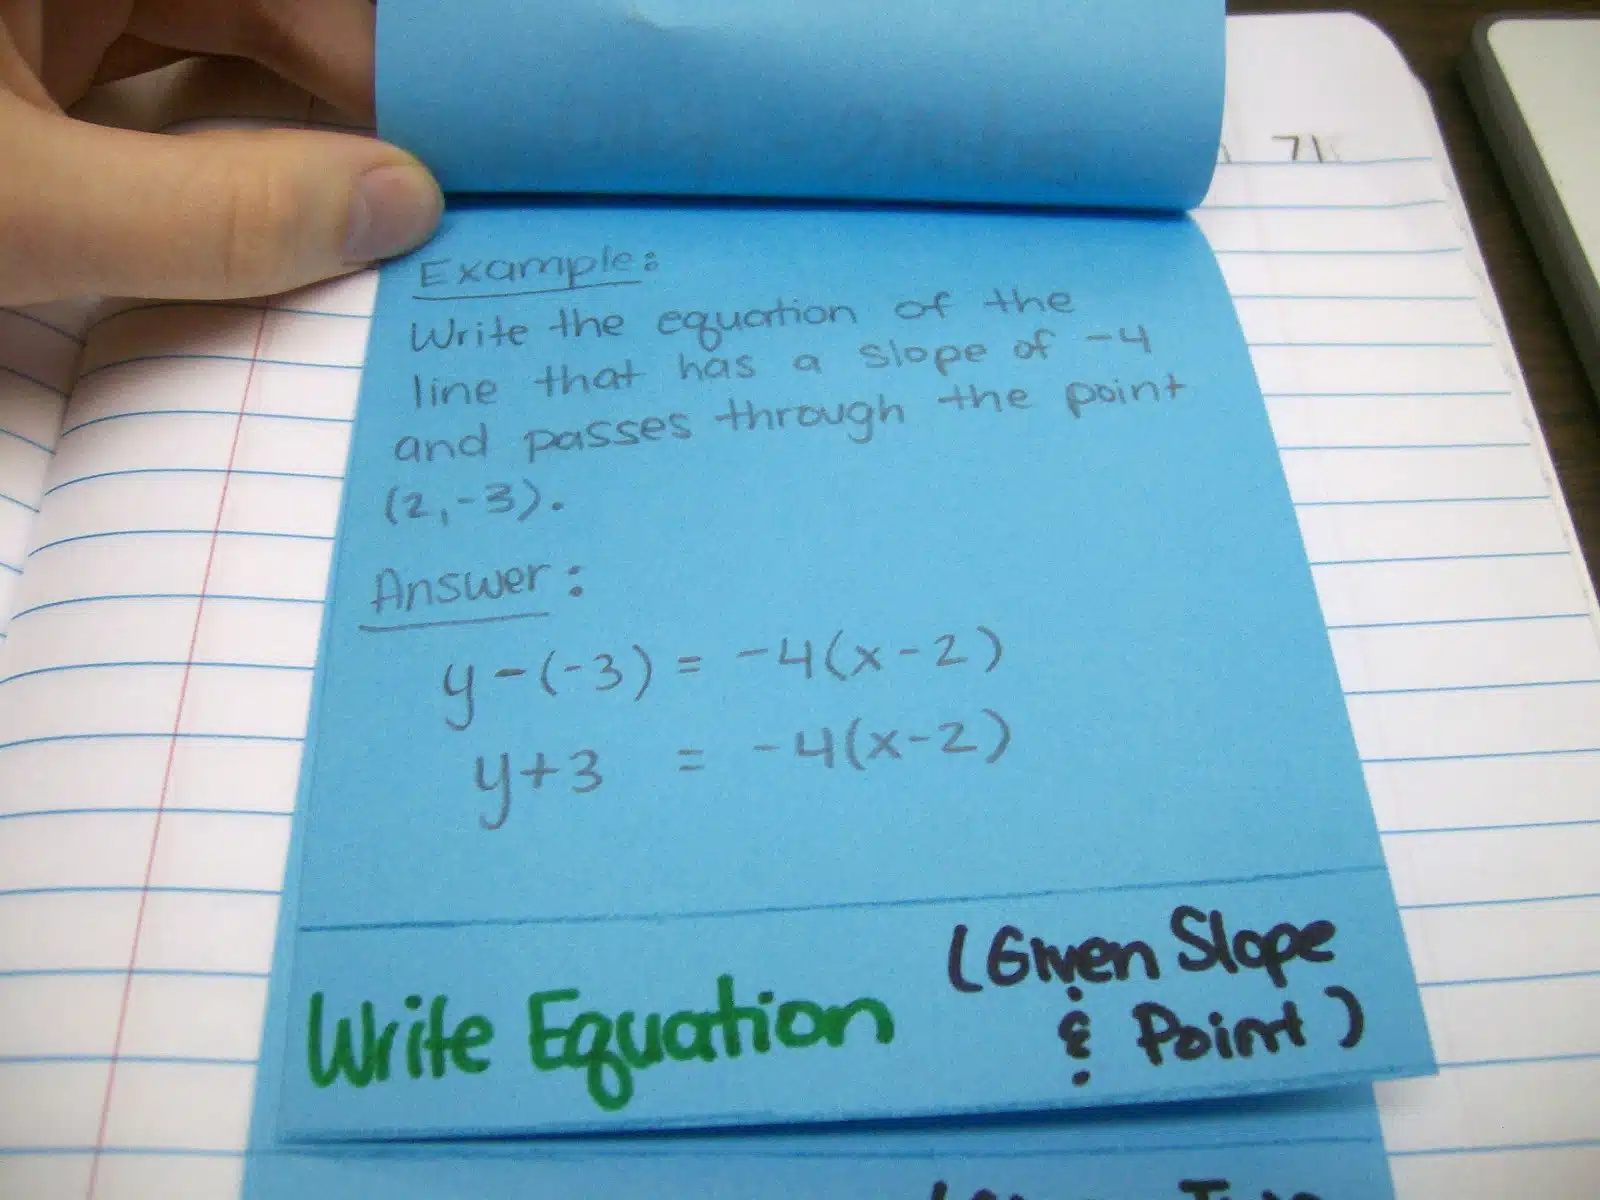 71
Example:
Write the equation of the
line that has a slope of -4
and passes through the point
(2,-3).
Answer:
y-(-3) = -4(x-2)
y+3 = -4(x-2)
Write Equation
(Given Slope
& Point)